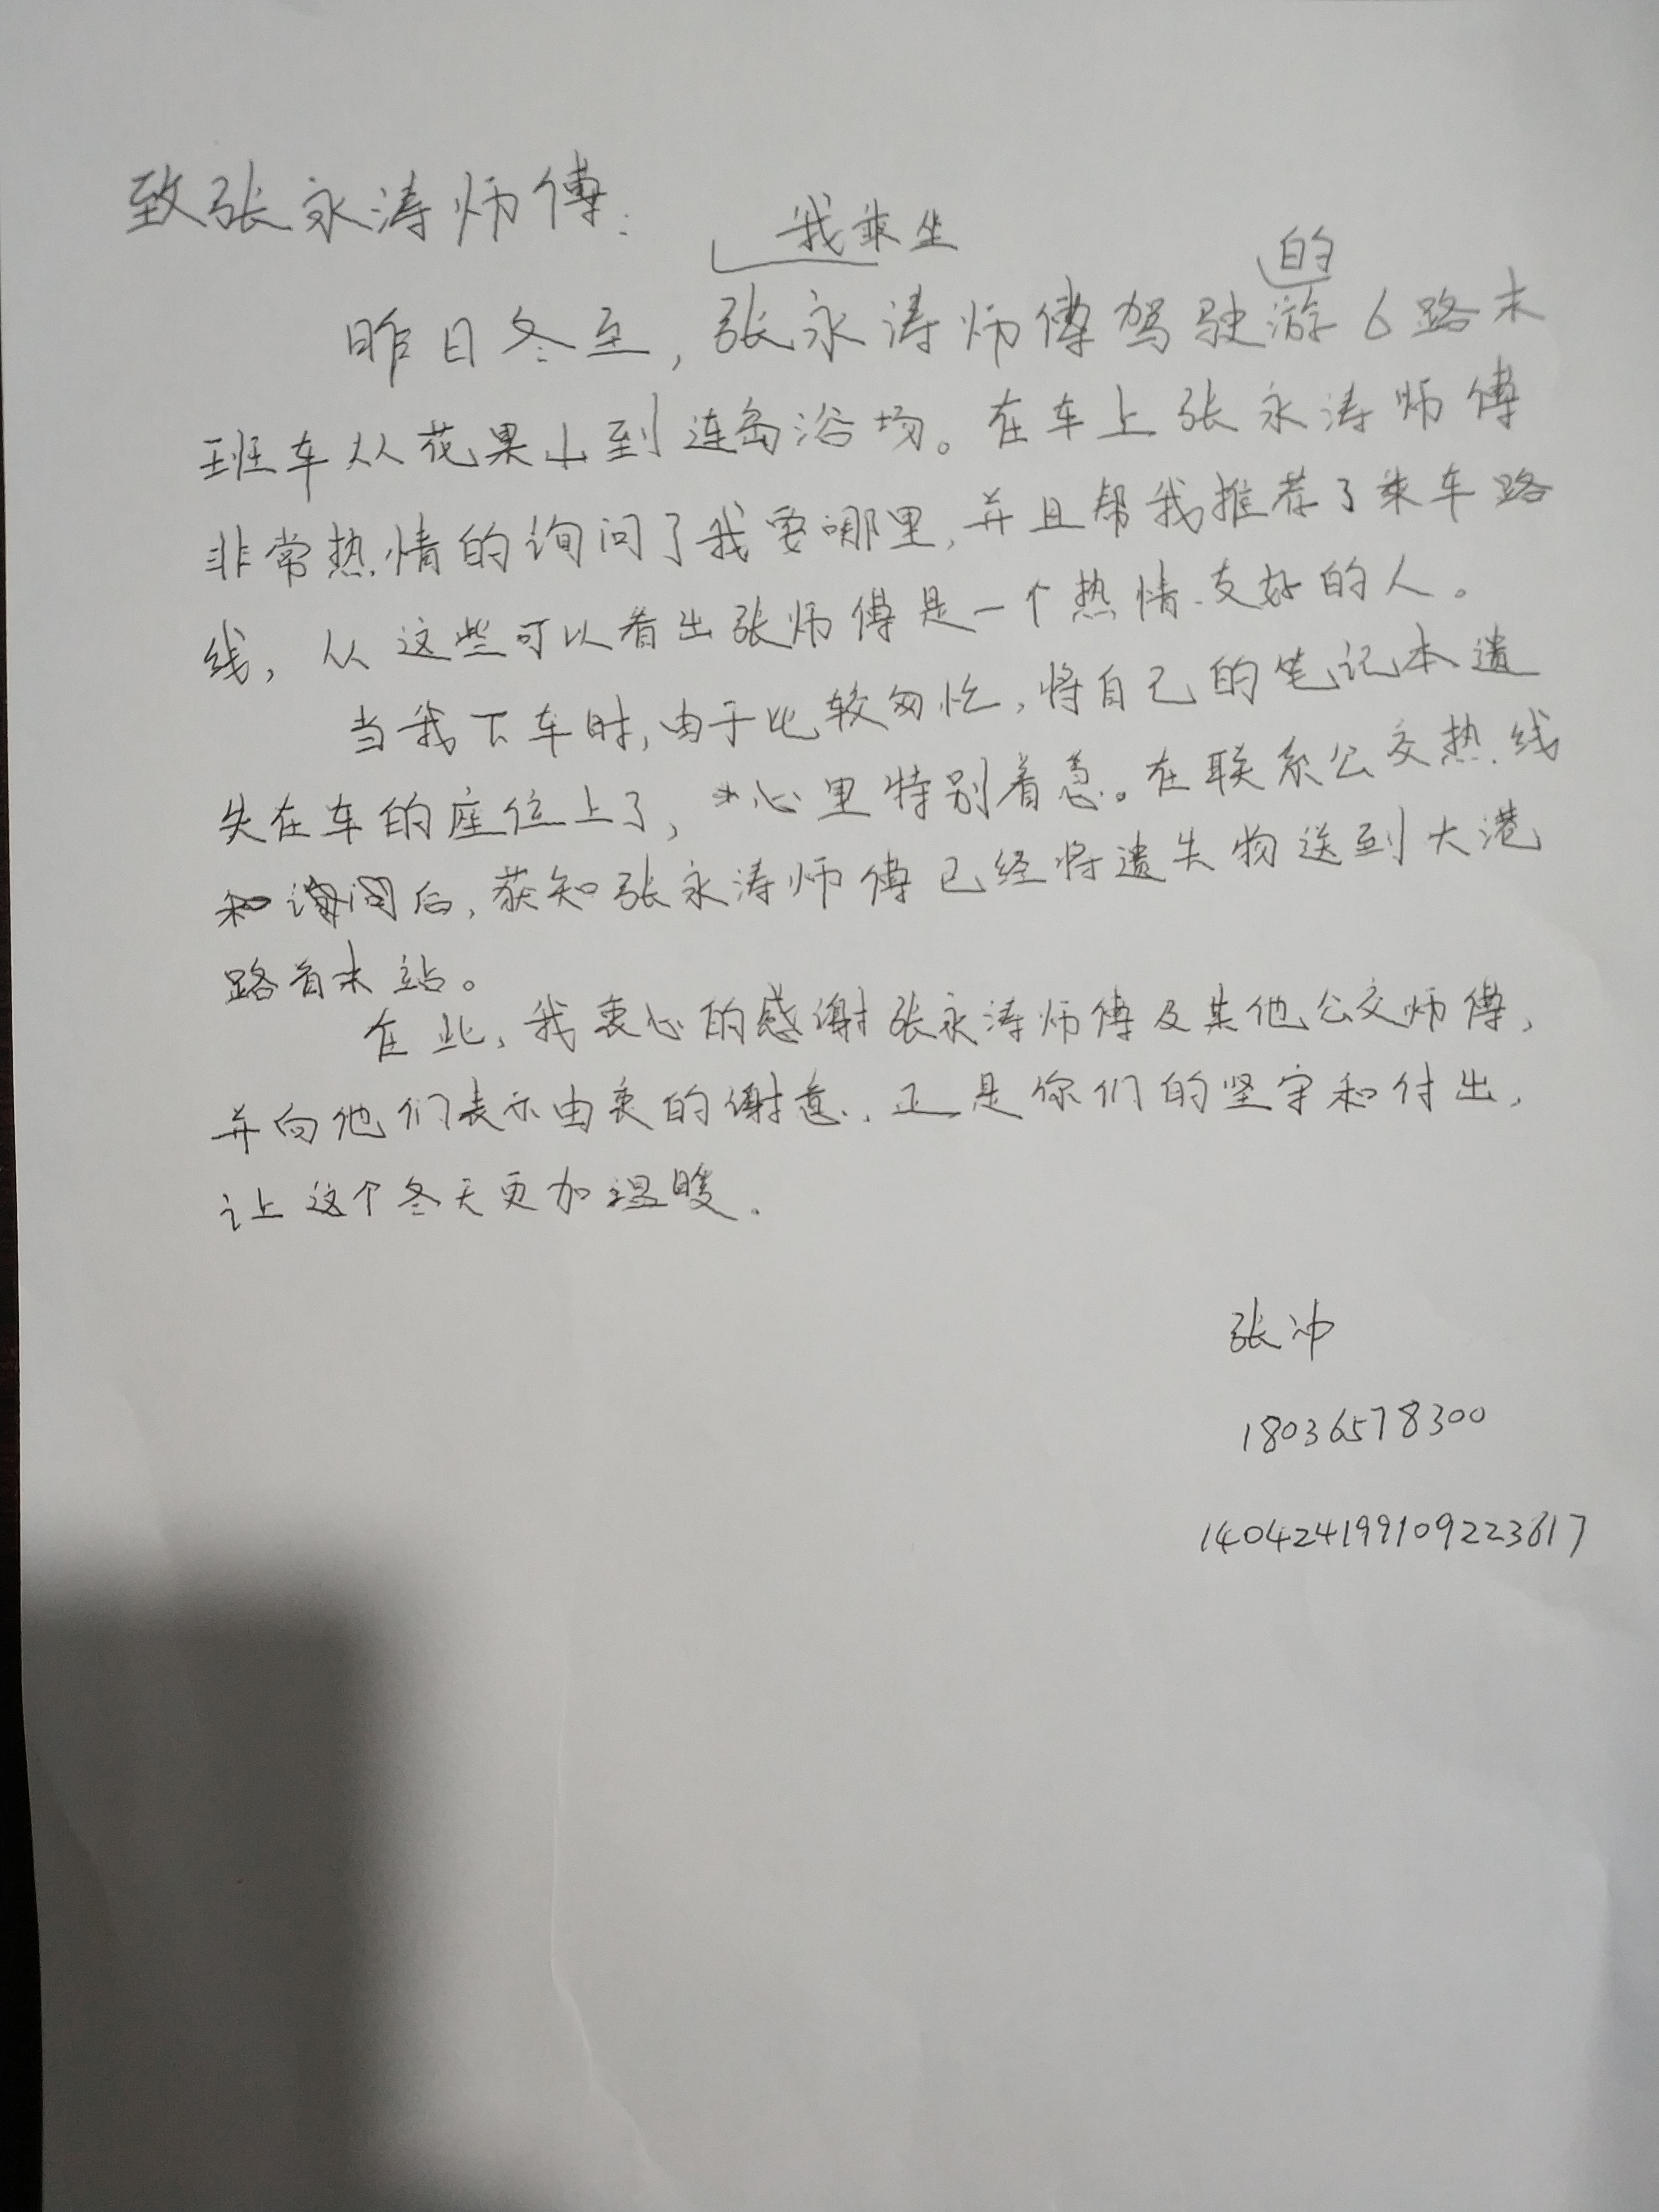 致张永涛师傅：
我乘坐 的
昨日冬至，张永涛师傅驾驶游6路末
班车从花果山到连岛浴场。在车上张永涛师傅
非常热情的询问了我要哪里，并且帮我推荐了乘车路
线，从这些可以看出张师傅是一个热情友好的人。
当我下车时，由于比较匆忙，将自己的笔记本遗
失在车的座位上了，心里特别着急。在联系公交热线
后，获知张永涛师傅已经将遗失物送到大港
路首末站。
在此，我衷心的感谢张永涛师傅及其他公交师傅，
并向他们表示由衷的谢意，正是你们的坚守和付出，
让这个冬天更加温暖.
张冲
18036578300
140424199109223617